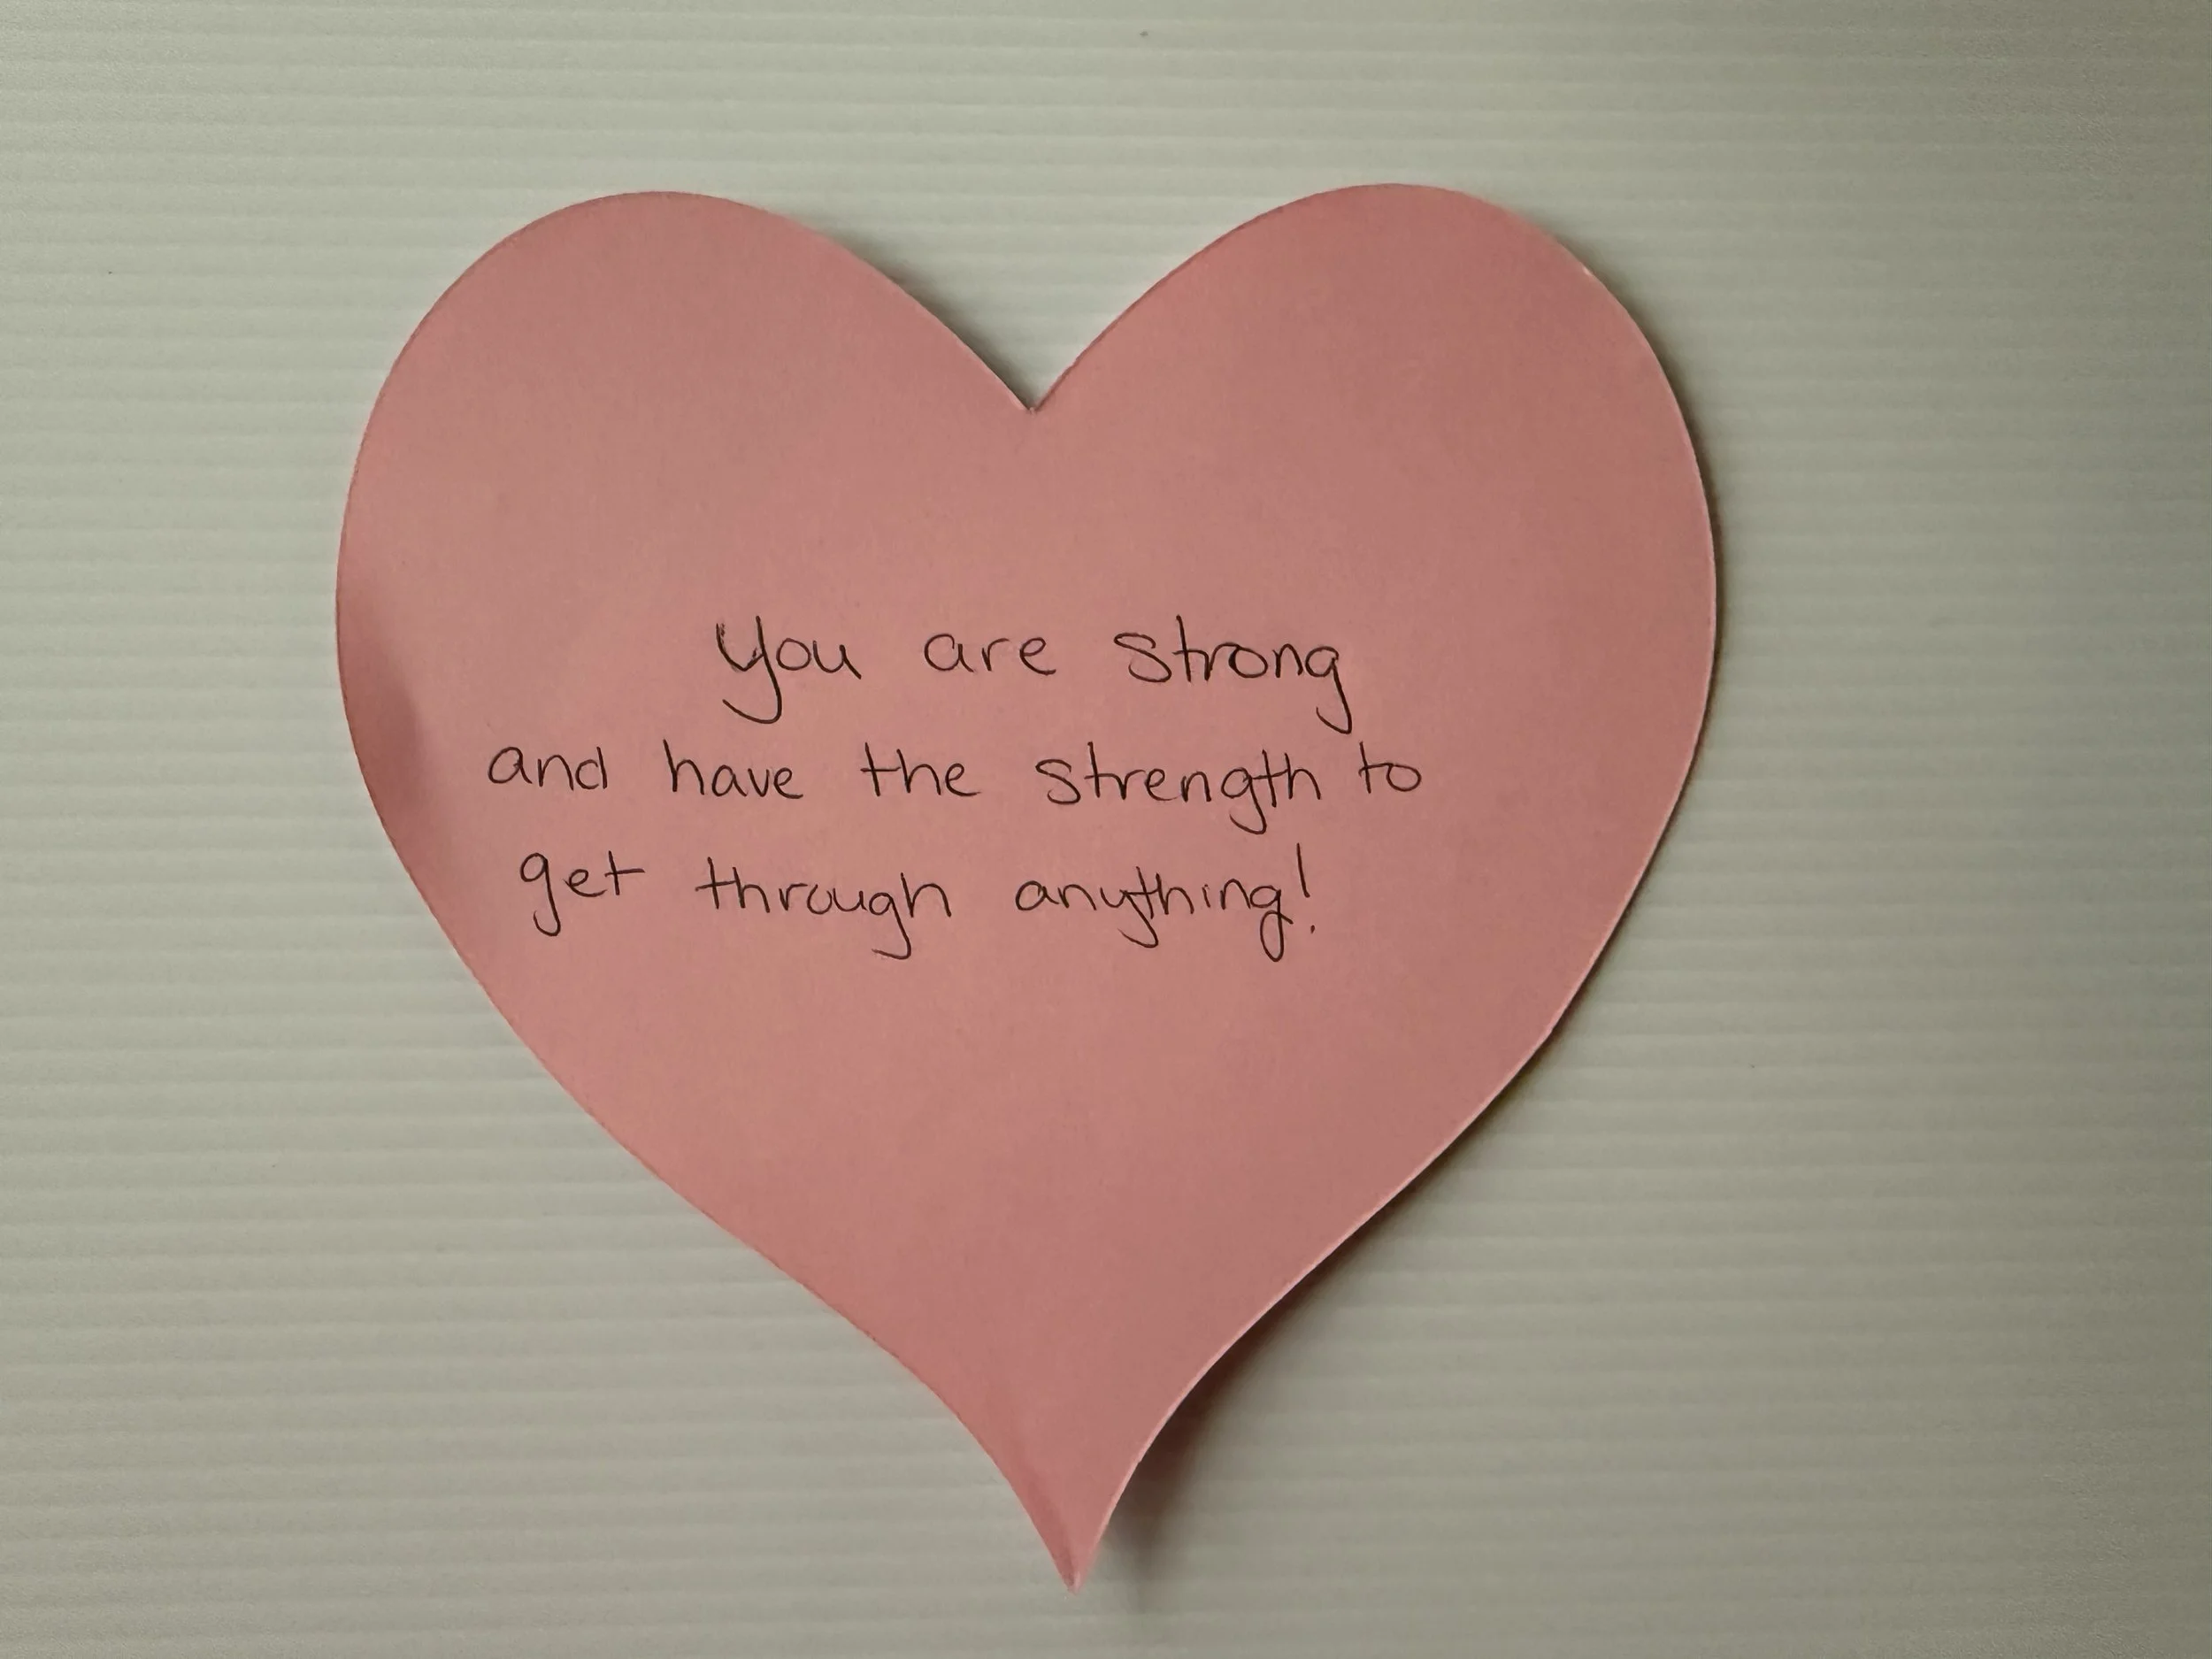 You are strong
and have the strength to
get through anything!